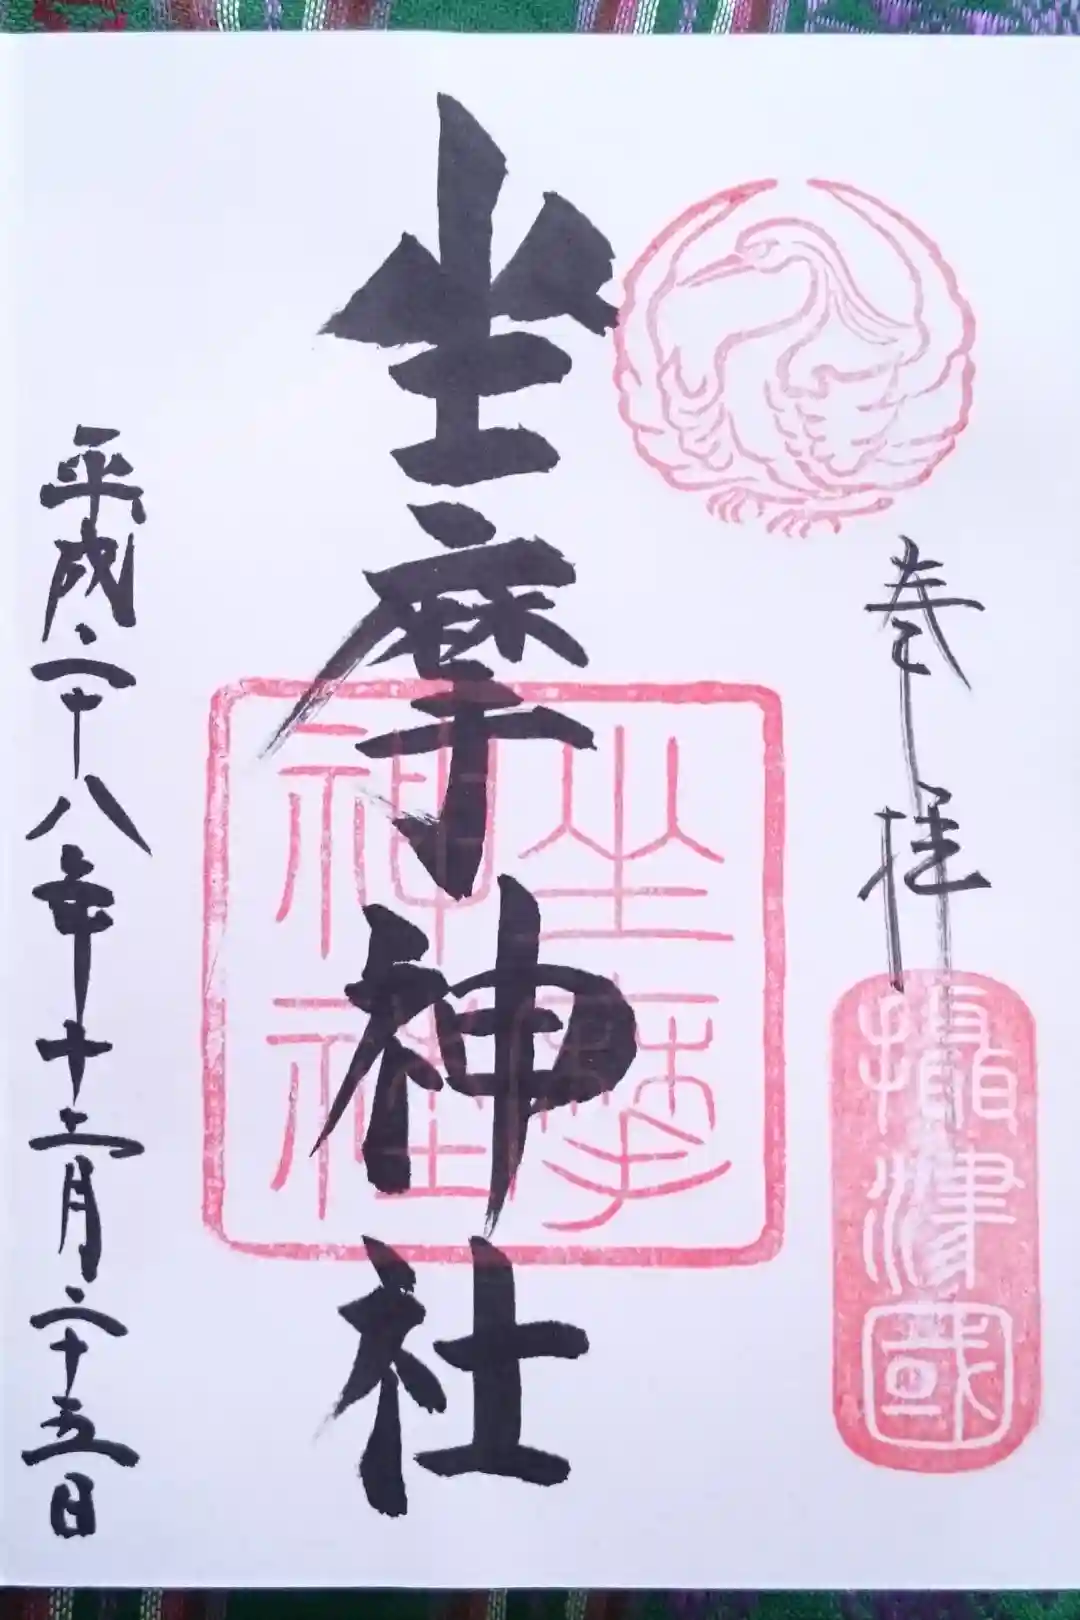 奉拝
攝津國
坐摩神社
坐摩
神社
平成二十八年十二月二十五日